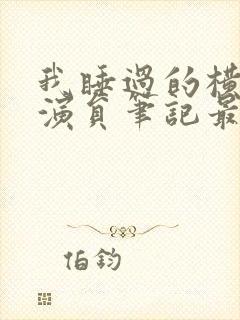 我睡過的橫
演員筆記最
伯鈞